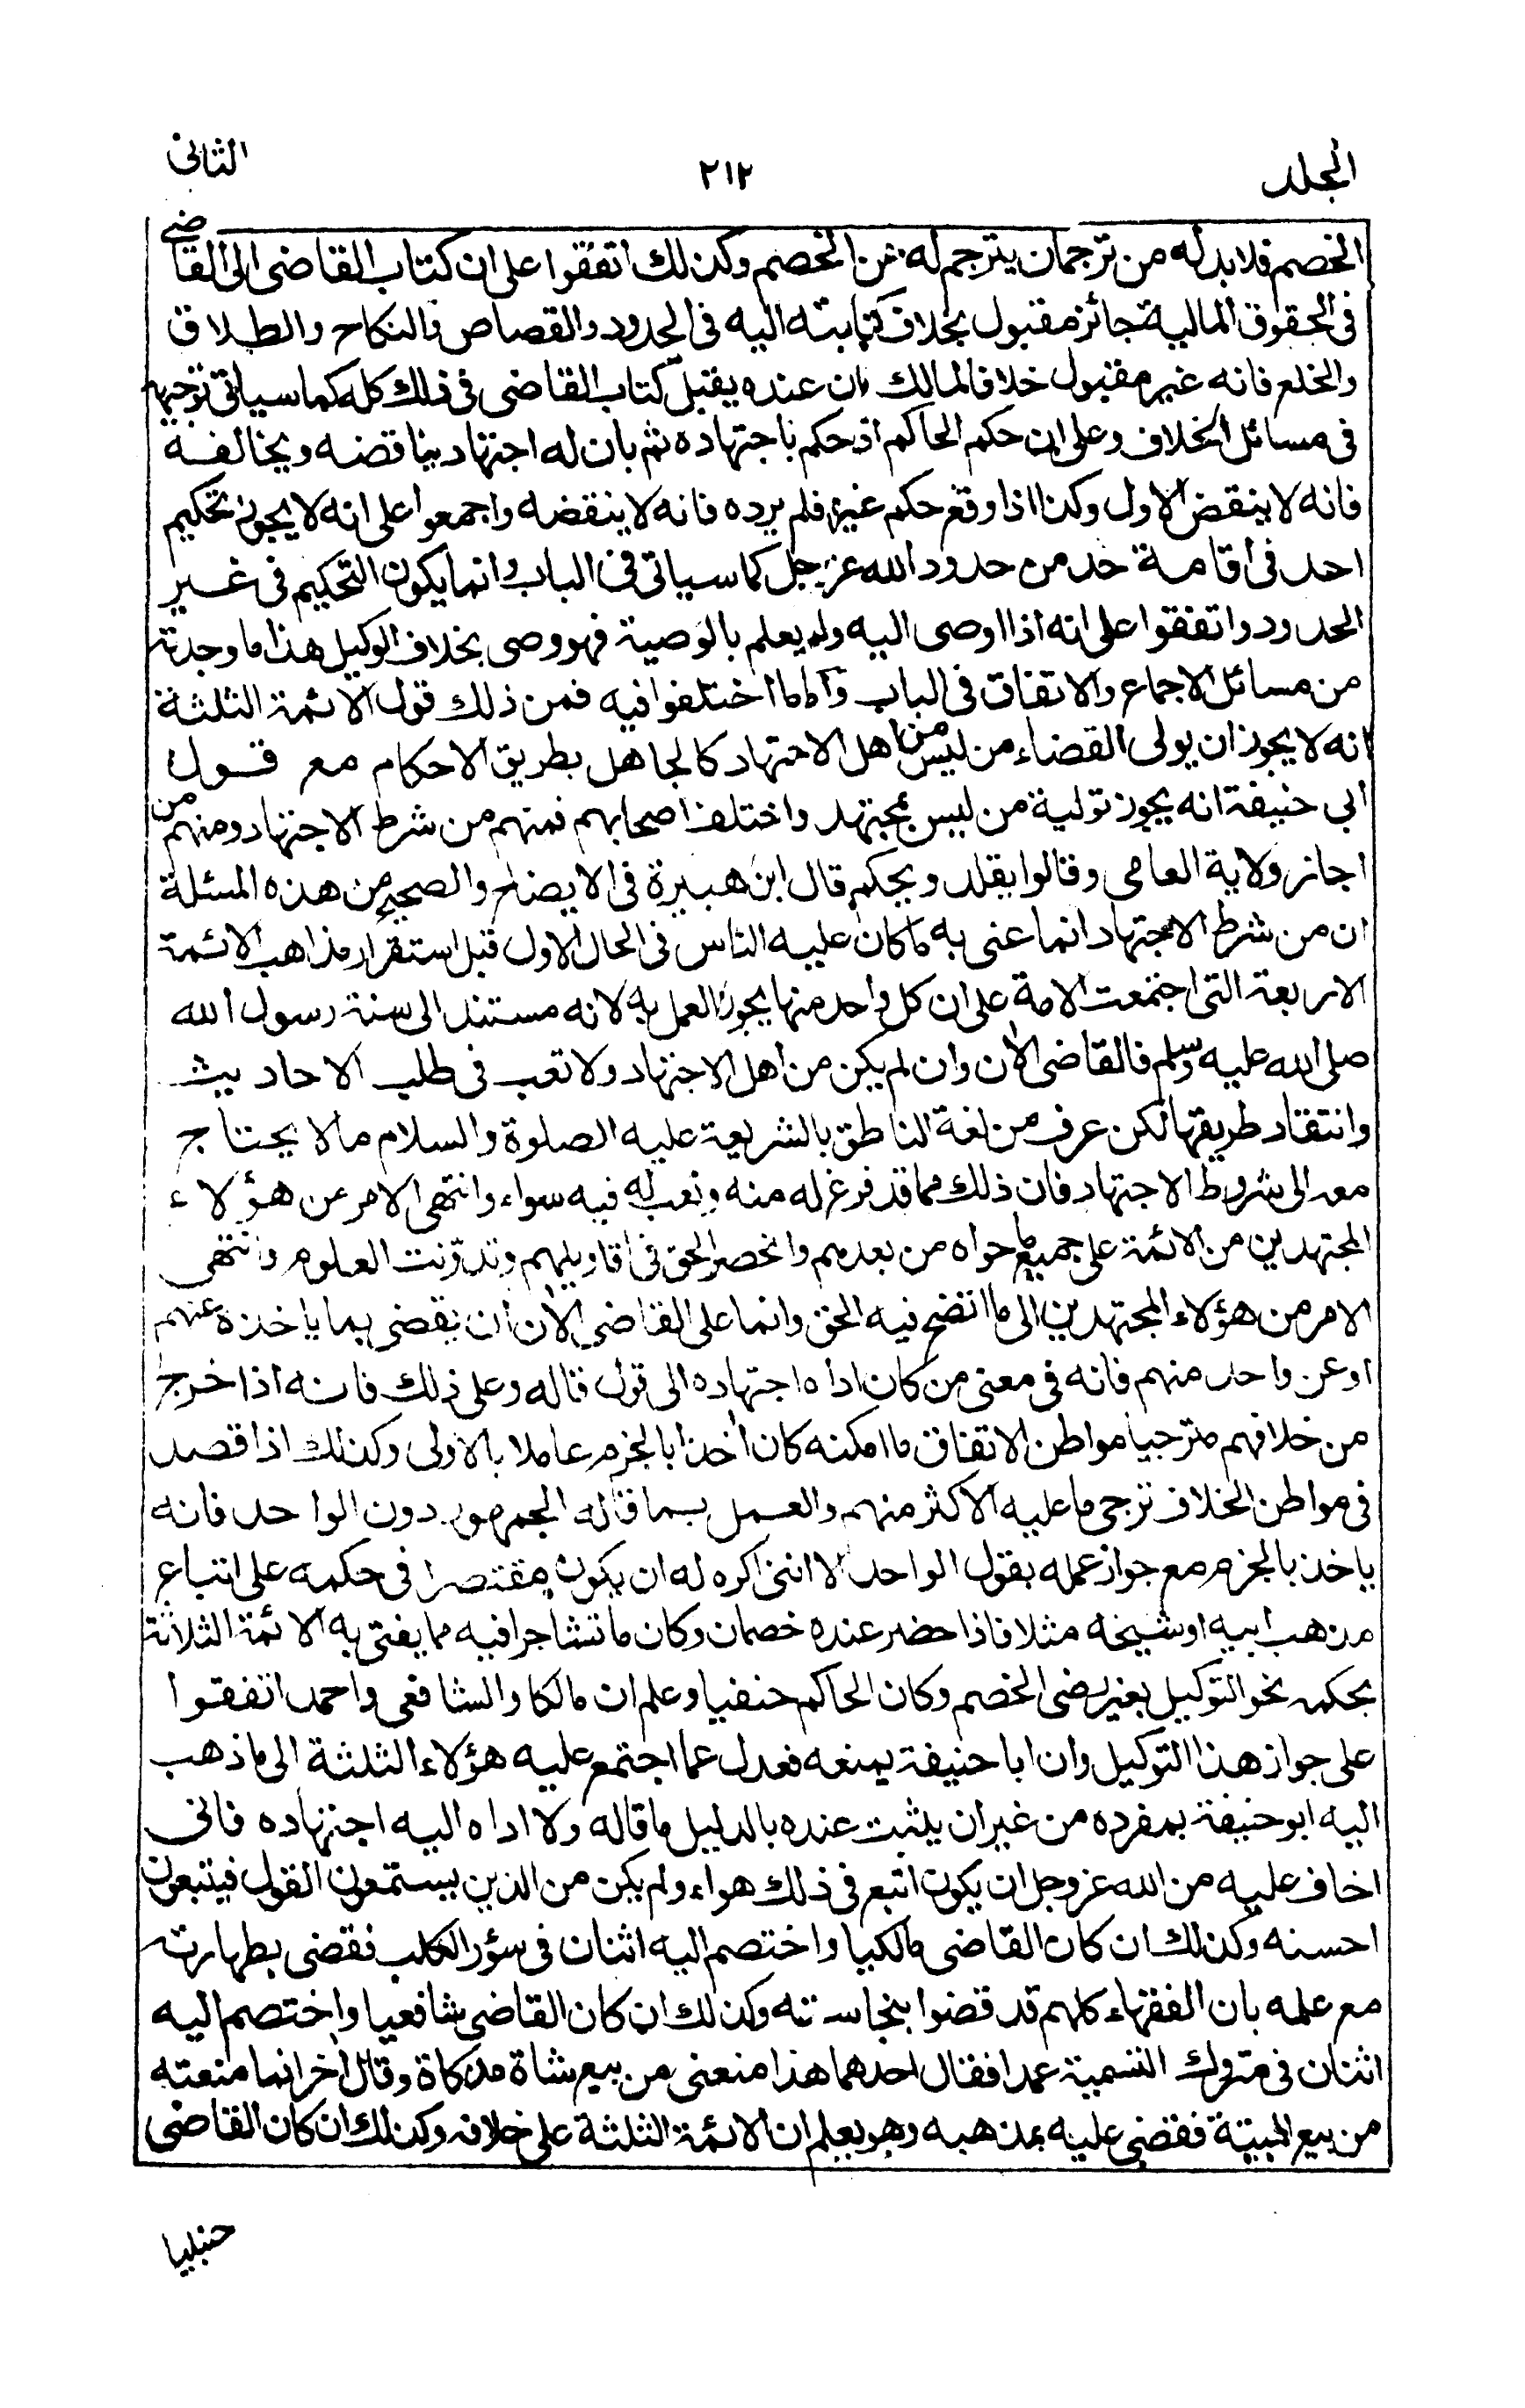 المجلد
٢١٢
الثانى
الخصم فلابد له من ترجمان يترجم له عن الخصم وكذلك اتفقوا على ان كتاب القاضى الى القاضى
فى الحقوق المالية جائز مقبول بخلاف كتابته اليه فى الحدود والقصاص والنكاح والطلاق
والخلع فانه غير مقبول خلافا لمالك فان عنده يقبل كتاب القاضى فى ذلك كله كما سياتى توجيهه
فى مسائل الخلاف وعلى ان حكم الحاكم اذ حكم باجتهاده ثم بان له اجتهاد يناقضه ويخالفه
فانه لا ينقض الاول وكذا اذا وقع حكم غيره فلم يرده فانه لا ينقضه واجمعوا على انه لا يجوز تحكيم
احد فى اقامة حد من حدود الله عز وجل كما سياتى فى الباب وانما يكون التحكيم فى غير
الحدود واتفقوا على انه اذا اوصى اليه ولم يعلم بالوصية فهو وصى بخلاف الوكيل هذا ما وجدته
من مسائل الاجماع والاتفاق فى الباب واما ما اختلفوا فيه فمن ذلك قول الائمة الثلثة
انه لا يجوز ان يولى القضاء من ليس من اهل الاجتهاد كالجاهل بطريق الاحكام مع قول
ابى حنيفة انه يجوز تولية من ليس بمجتهد واختلف اصحابهم فمنهم من شرط الاجتهاد ومنهم من
اجاز ولاية العامى وقالوا يقلد ويحكم قال ابن هبيرة فى الايضاح والصحيح من هذه المسئلة
ان من شرط الاجتهاد انما عنى به ما كان عليه الناس فى الحال الاول قبل استقرار مذاهب الائمة
الاربعة التى اجتمعت الامة على ان كل واحد منها يجوز العمل به لانه مستند الى سنة رسول الله
صلى الله عليه وسلم فالقاضى الآن وان لم يكن من اهل الاجتهاد ولا تعب فى طلب الاحاديث
وانتقاد طريقها لكن عرف من لغة الناطق بالشريعة عليه الصلوة والسلام مالا يحتاج
معه الى شروط الاجتهاد فان ذلك مما قد فرغ له منه وتعب له فيه سواء وانتهى الامر عن هؤلاء
المجتهدين من الائمة على جميع ما حواه من بعدهم وانحصر الحق فى اقاويلهم وتدونت العلوم وانتهى
الامر من هؤلاء المجتهدين الى ما اتضح فيه الحق وانما على القاضى الآن ان يقضى بما ياخذه عنهم
او عن واحد منهم فانه فى معنى من كان اداه اجتهاده الى قول قاله وعلى ذلك فانه اذا خرج
من خلافهم مترجيا مواطن الاتفاق ما امكنه كان آخذا بالحزم عاملا بالاولى وكذلك اذا قصد
فى مواطن الخلاف ترجى ما عليه الاكثر منهم والعمل بما قاله الجمهور دون الواحد فانه
ياخذ بالحزم مع جواز عمله بقول الواحد الا اننى اكره له ان يكون مقتصرا فى حكمه على اتباع
مذهب ابيه او شيخه مثلا فاذا حضر عنده خصمان وكان ما تشاجرا فيه مما يفتى به الائمة الثلاثة
بحكمه نحو التوكيل بغير رضى الخصم وكان الحاكم حنفيا وعلم ان مالكا والشافعى واحمد اتفقوا
على جواز هذا التوكيل وان ابا حنيفة يمنعه فعدل عما اجتمع عليه هؤلاء الثلثة الى ما ذهب
اليه ابو حنيفة بمفرده من غير ان يثبت عنده بالدليل ما قاله ولا اداه اليه اجتهاده فانى
اخاف عليه من الله عز وجل ان يكون اتبع فى ذلك هواه ولم يكن من الذين يستمعون القول فيتبعون
احسنه وكذلك ان كان القاضى مالكيا واختصم اليه اثنان فى سؤر الكلب فقضى بطهارته
مع علمه بان الفقهاء كلهم قد قضوا بنجاسته وكذلك ان كان القاضى شافعيا واختصم اليه
اثنان فى متروك التسمية عمدا فقال احدهما هذا منعنى من بيع شاة مذكاة وقال آخر انما منعته
من بيع الميتة فقضى عليه بمذهبه وهو يعلم ان الائمة الثلثة على خلافه وكذلك ان كان القاضى
حنبليا